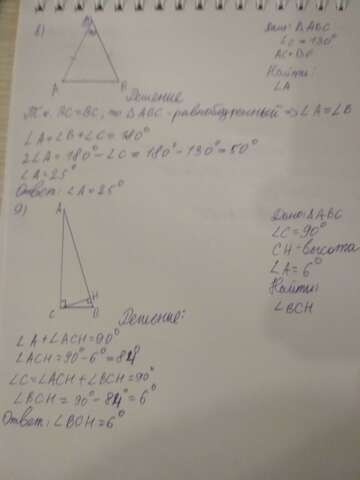 8)
Дано: △ABC
∠C = 130°
AC = BC
Найти:
∠A
A B
Решение
Т.к. AC = BC, то △ABC - равнобедренный ⇒ ∠A = ∠B
∠A + ∠B + ∠C = 180°
2∠A = 180° - ∠C = 180° - 130° = 50°
∠A = 25°
Ответ: ∠A = 25°
9)
Дано: △ABC
∠C = 90°
CH - высота
∠A = 6°
Найти:
∠BCH
A
H
C B
Решение:
∠A + ∠ACH = 90°
∠ACH = 90° - 6° = 84°
∠C = ∠ACH + ∠BCH = 90°
∠BCH = 90° - 84° = 6°
Ответ: ∠BCH = 6°